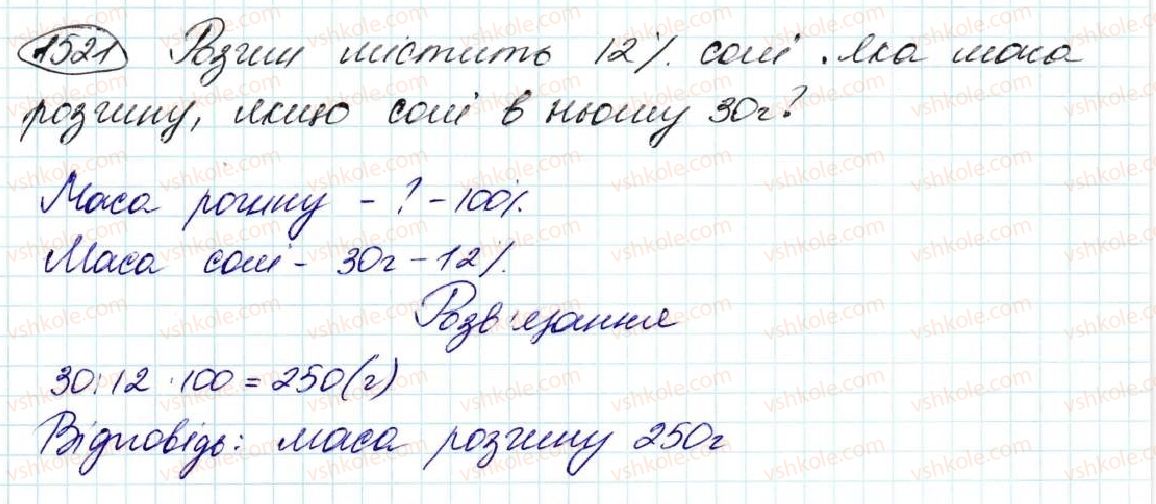 1521 Розчин містить 12% солі. Яка маса
розчину, якщо солі в ньому 30г?
Маса рочину - ? - 100%.
Маса солі - 30г - 12%.
Розв'язання
30:12·100=250(г)
Відповідь: маса розчину 250г